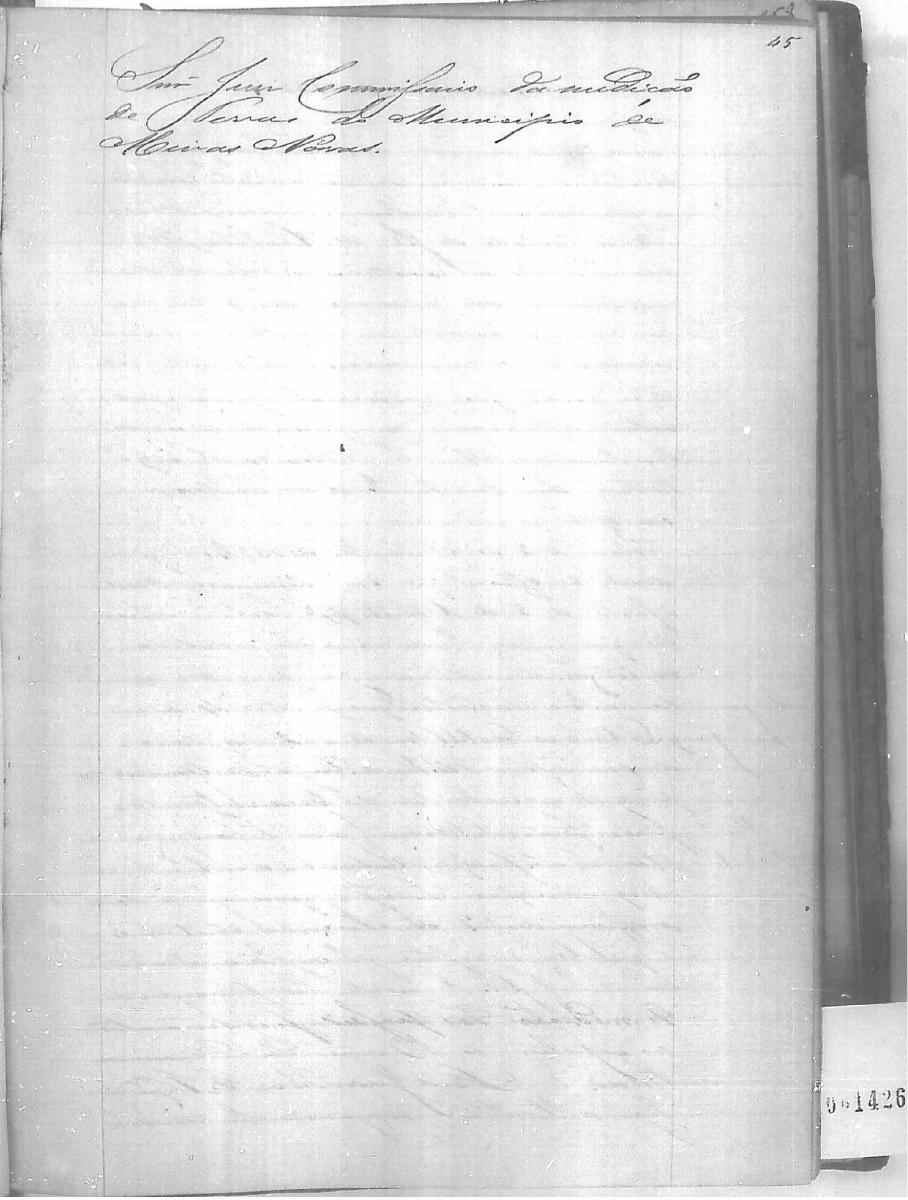 45
Snr. Juiz Commissario da medicão
de Terras do Municipio de
Minas Novas.
001426